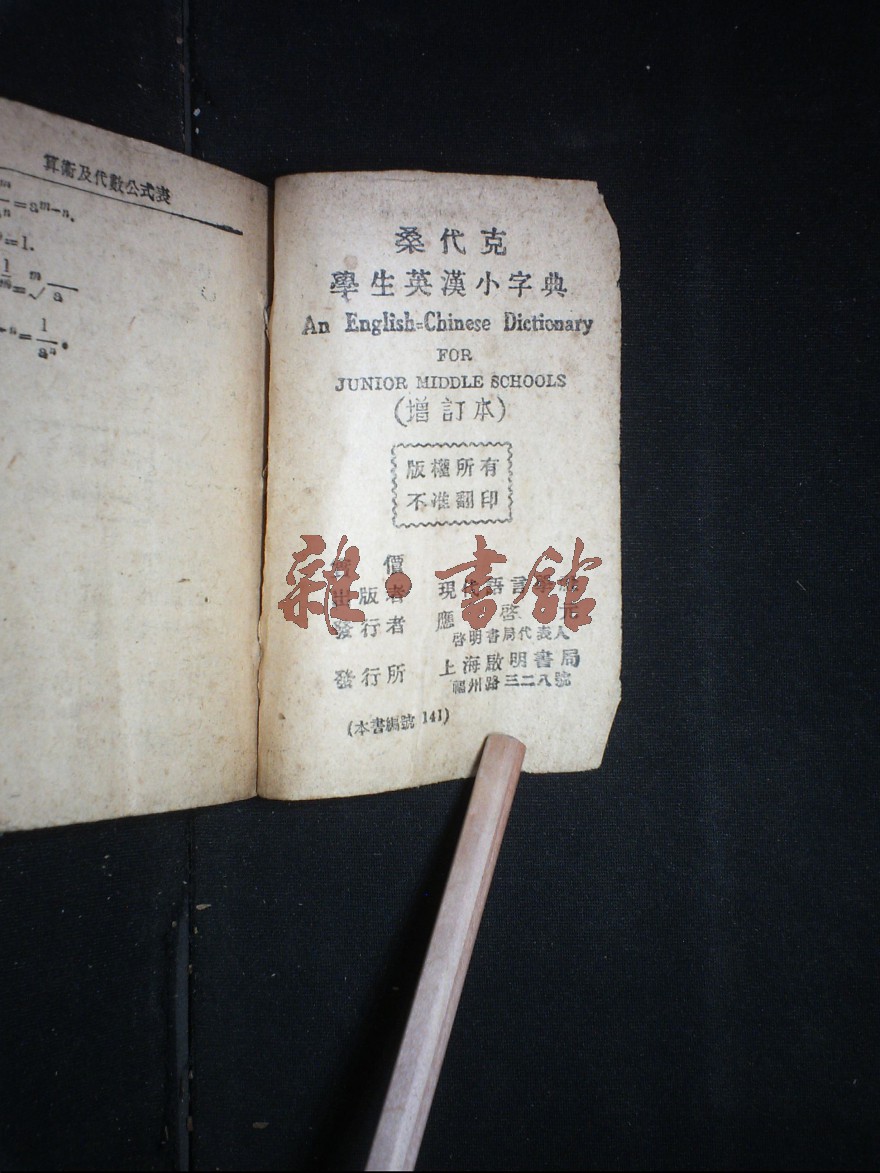 算術及代數公式表
=aᵐ⁻ⁿ.
=1.
桑代克
學生英漢小字典
An English=Chinese Dictionary
FOR
JUNIOR MIDDLE SCHOOLS
(增訂本)
版權所有
不准翻印
價
出版者 現代語言學
發行者 應啓元
啓明書局代表人
發行所 上海啟明書局
福州路三二八號
(本書編號 141)
雜·書館